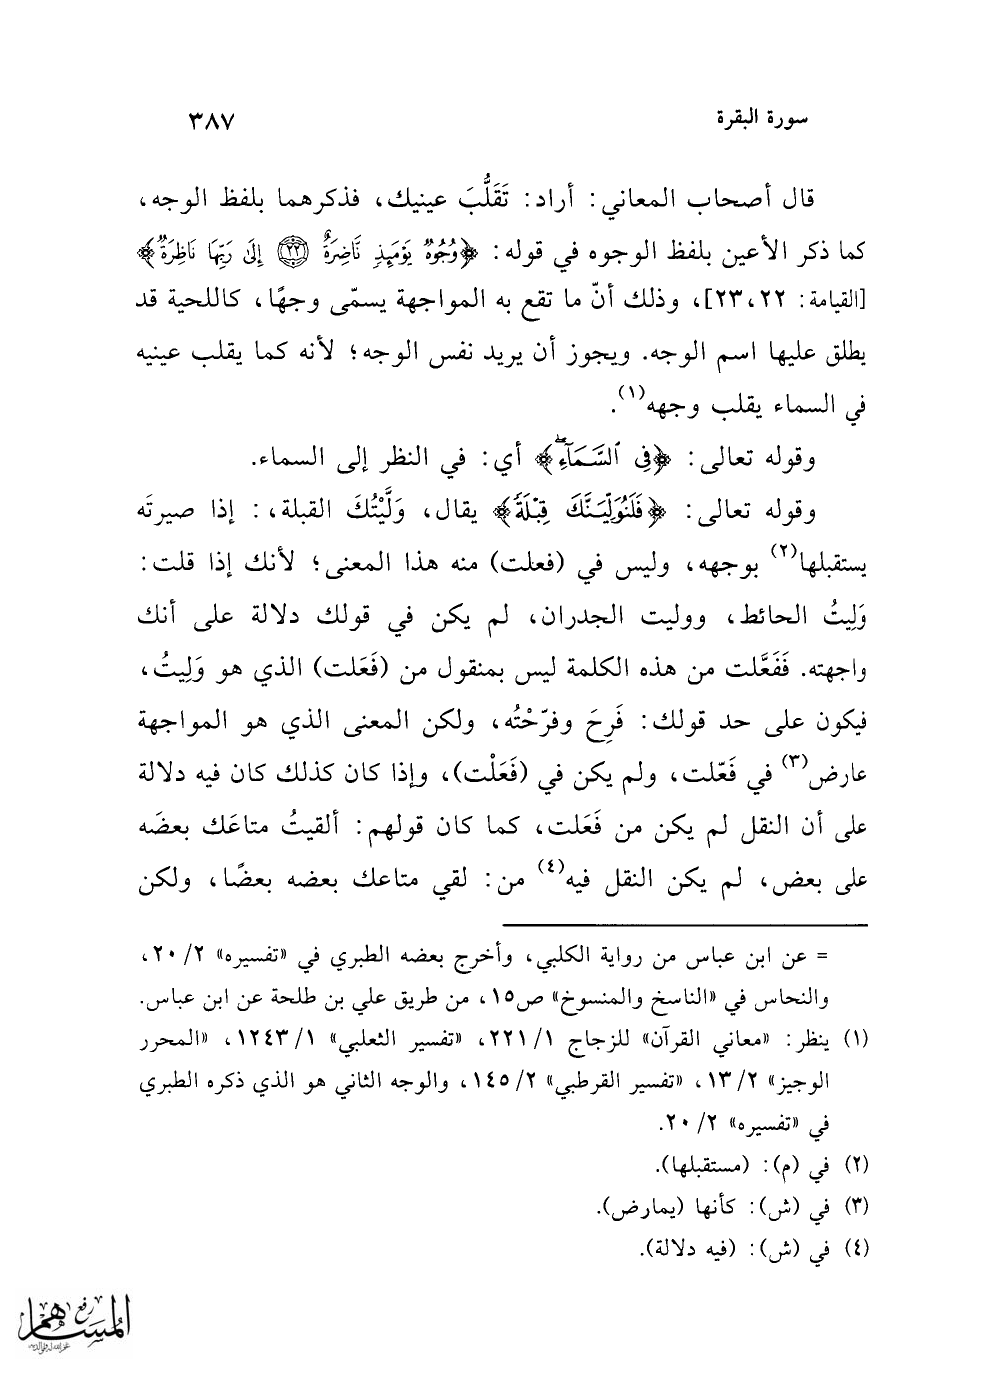 سورة البقرة
٣٨٧
قال أصحاب المعاني: أراد: تَقَلُّبَ عينيك، فذكرهما بلفظ الوجه،
كما ذكر الأعين بلفظ الوجوه في قوله: ﴿وُجُوهٌ يَوْمَئِذٍ نَّاضِرَةٌ ٢٢ إِلَىٰ رَبِّهَا نَاظِرَةٌ﴾
[القيامة: ٢٢، ٢٣]، وذلك أنّ ما تقع به المواجهة يسمّى وجهًا، كاللحية قد
يطلق عليها اسم الوجه. ويجوز أن يريد نفس الوجه؛ لأنه كما يقلب عينيه
في السماء يقلب وجهه(١).
وقوله تعالى: ﴿فِي ٱلسَّمَآءِۖ﴾ أي: في النظر إلى السماء.
وقوله تعالى: ﴿فَلَنُوَلِّيَنَّكَ قِبْلَةً﴾ يقال، وَلَّيْتُكَ القبلة،: إذا صيرتَه
يستقبلها(٢) بوجهه، وليس في (فعلت) منه هذا المعنى؛ لأنك إذا قلت:
وَلِيتُ الحائط، ووليت الجدران، لم يكن في قولك دلالة على أنك
واجهته. فَفَعَّلت من هذه الكلمة ليس بمنقول من (فَعَلت) الذي هو وَلِيتُ،
فيكون على حد قولك: فَرِحَ وفرّحْتُه، ولكن المعنى الذي هو المواجهة
عارض(٣) في فَعّلت، ولم يكن في (فَعَلْت)، وإذا كان كذلك كان فيه دلالة
على أن النقل لم يكن من فَعَلت، كما كان قولهم: ألقيتُ متاعَك بعضَه
على بعض، لم يكن النقل فيه(٤) من: لقي متاعك بعضه بعضًا، ولكن
= عن ابن عباس من رواية الكلبي، وأخرج بعضه الطبري في «تفسيره» ٢/ ٢٠،
والنحاس في «الناسخ والمنسوخ» ص١٥، من طريق علي بن طلحة عن ابن عباس.
(١) ينظر: «معاني القرآن» للزجاج ١/ ٢٢١، «تفسير الثعلبي» ١/ ١٢٤٣، «المحرر
الوجيز» ٢/ ١٣، «تفسير القرطبي» ٢/ ١٤٥، والوجه الثاني هو الذي ذكره الطبري
في «تفسيره» ٢/ ٢٠.
(٢) في (م): (مستقبلها).
(٣) في (ش): كأنها (يمارض).
(٤) في (ش): (فيه دلالة).
رفع
المساهم